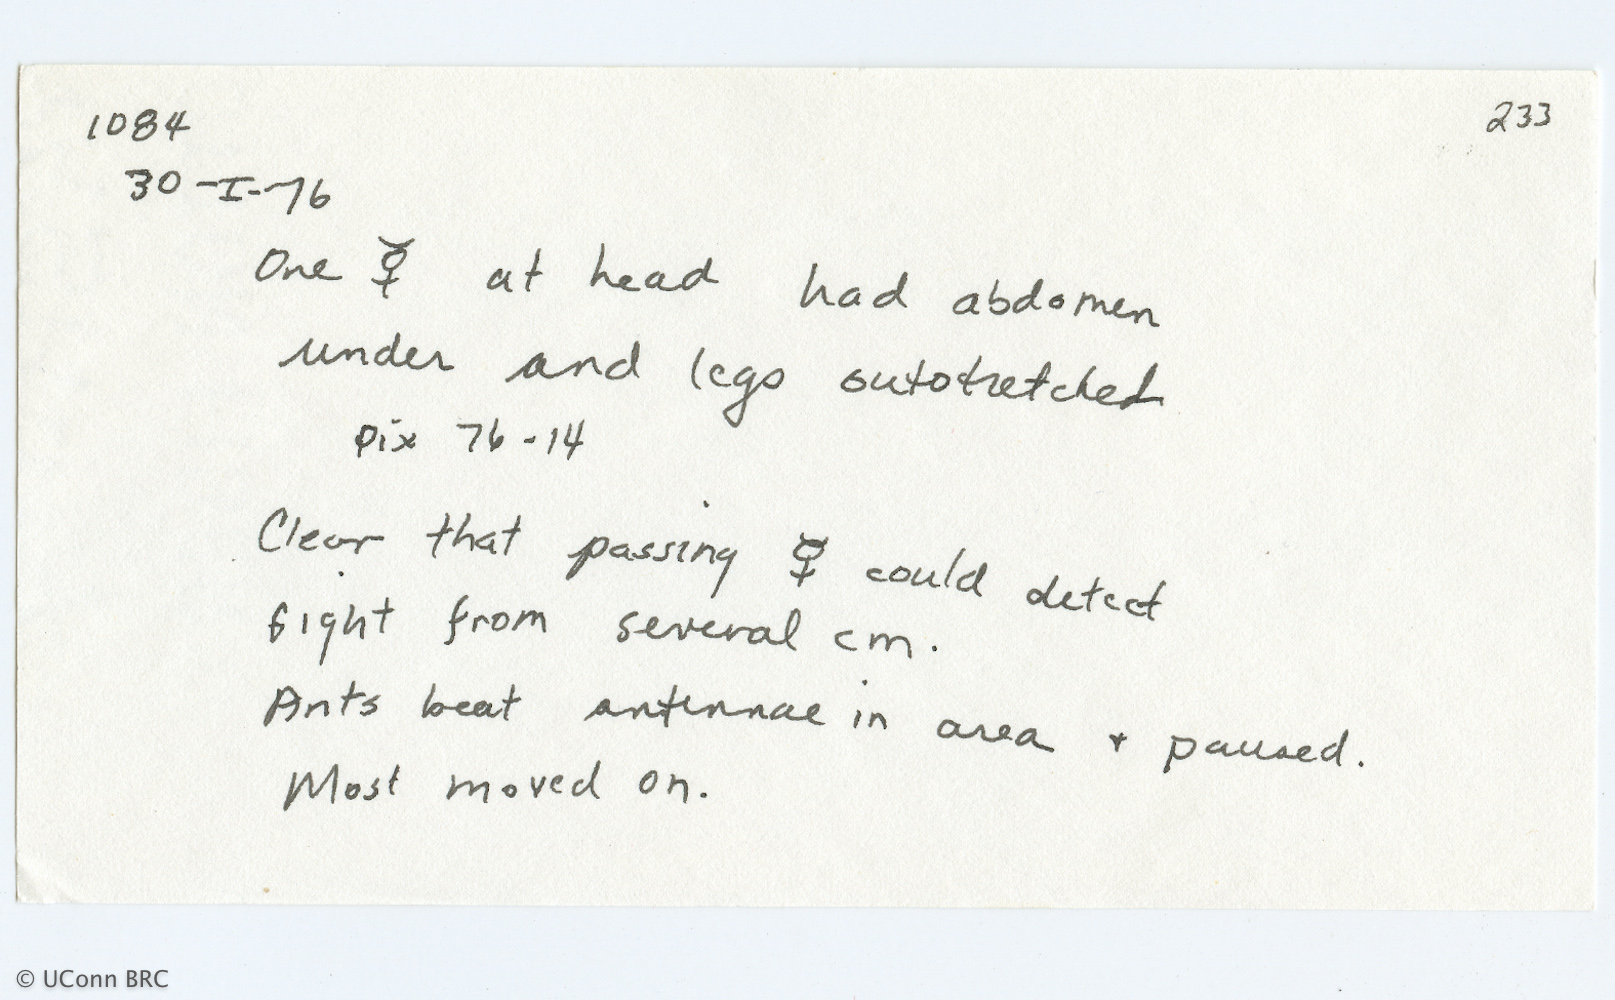 1084
233
30-I-76
One ☿ at head had abdomen
under and legs outstretched
pix 76-14
Clear that passing ☿ could detect
fight from several cm.
Ants beat antennae in area + paused.
Most moved on.
© UConn BRC